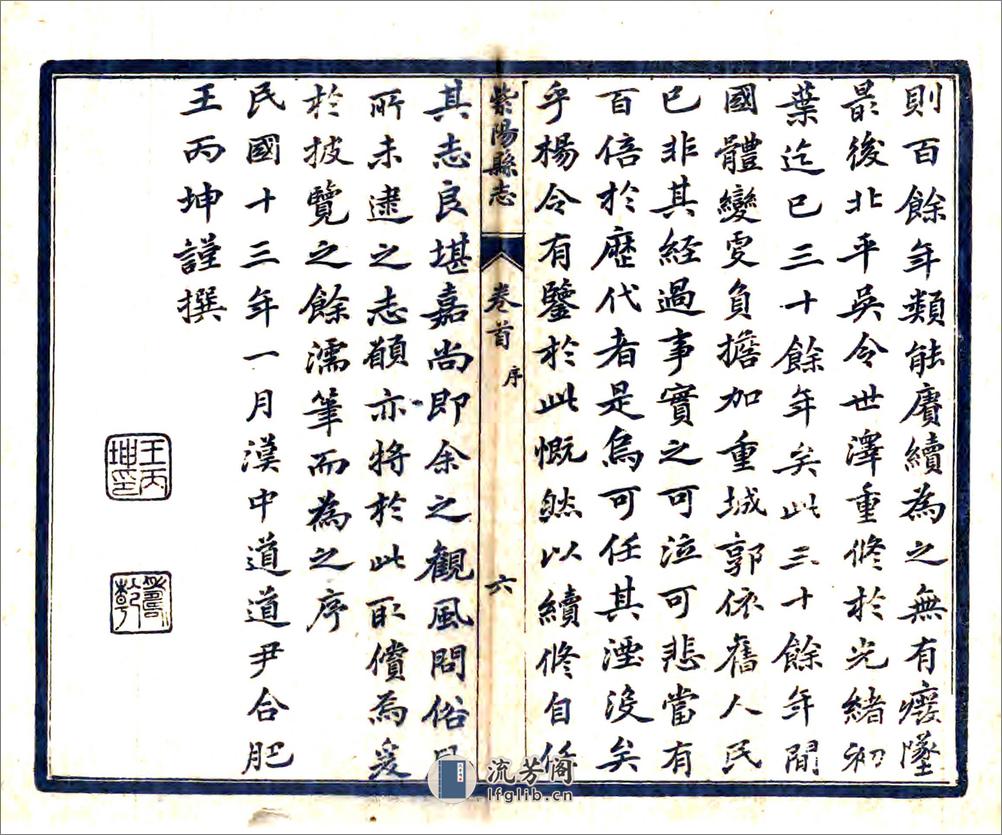 則百餘年類能賡續為之無有癈墜
最後北平吳令世澤重修於光緒初
葉迄已三十餘年矣此三十餘年間
國體變更負擔加重城郭依舊人民
已非其經過事實之可泣可悲當有
百倍於歷代者是烏可任其湮沒矣
乎楊令有鑒於此慨然以續修自任
紫陽縣志 卷首 序 六
其志良堪嘉尚即余之觀風問俗
所未逮之志願亦將於此取償焉爰
於披覽之餘濡筆而為之序
民國十三年一月漢中道道尹合肥
王丙坤謹撰
王丙坤印
流芳阁
lfglib.cn